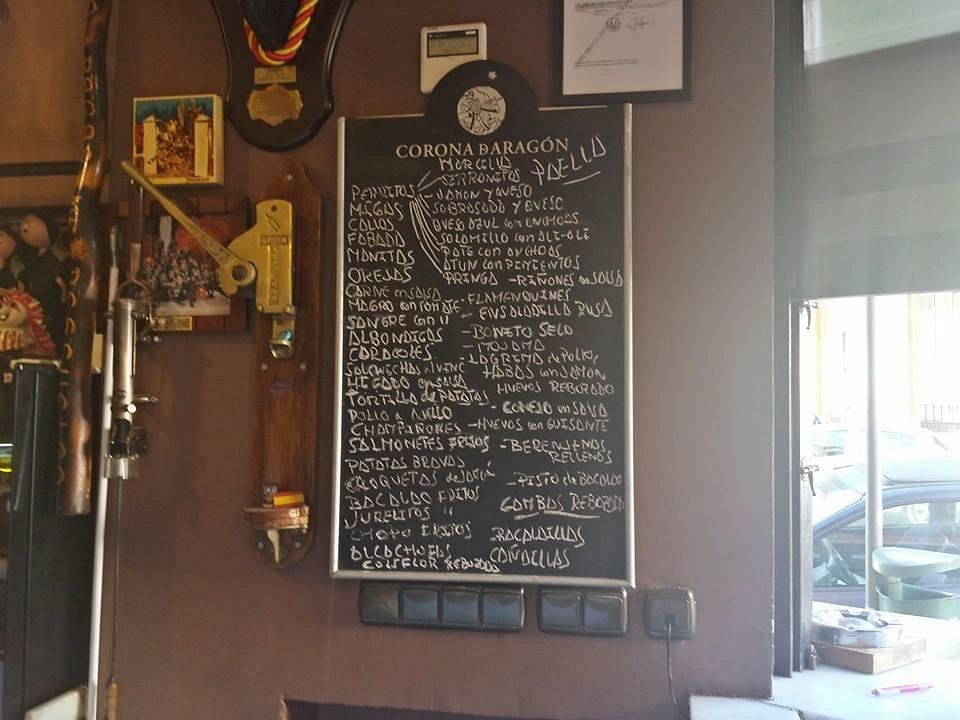 CORONA D ARAGÓN
PAELLA
MORCILLA
SERRANITOS
PERRITOS - JAMON Y QUESO
MIGAS SOBRASADA Y QUESO
CALLOS QUESO AZUL CON ANCHOAS
FABADA SOLOMILLO CON ALI-OLI
MANITAS PATE CON ANCHOAS
OREJAS ATUN CON PIMIENTOS
PRINGA - RIÑONES EN SALSA
CARNE EN SALSA
MAGRO CON TOMATE - FLAMENQUINES
SANGRE CON " - ENSALADILLA RUSA
ALBONDIGAS - BONITO SECO
CARACOLES - MOJAMA
SALCHICHAS AL VINE - LAGRIMA DE POLLO
HABAS CON JAMON
HIGADO EN SALSA HUEVOS REBOZADO
TORTILLA DE PATATAS
POLLO A AJILLO - CONEJO EN SALSA
CHAMPIÑONES - HUEVOS CON GUISANTE
SALMONETES FRITOS - BERENJENAS
RELLENAS
PATATAS BRAVAS
CROQUETAS DE - PISTO DE BACALAO
BACALAO FRITOS GAMBAS REBOZADA
JURELITOS "
CHOCO FRITOS BACALADILLAS
ALCACHOFAS CAÑADILLAS
COLIFLOR REBOZADA